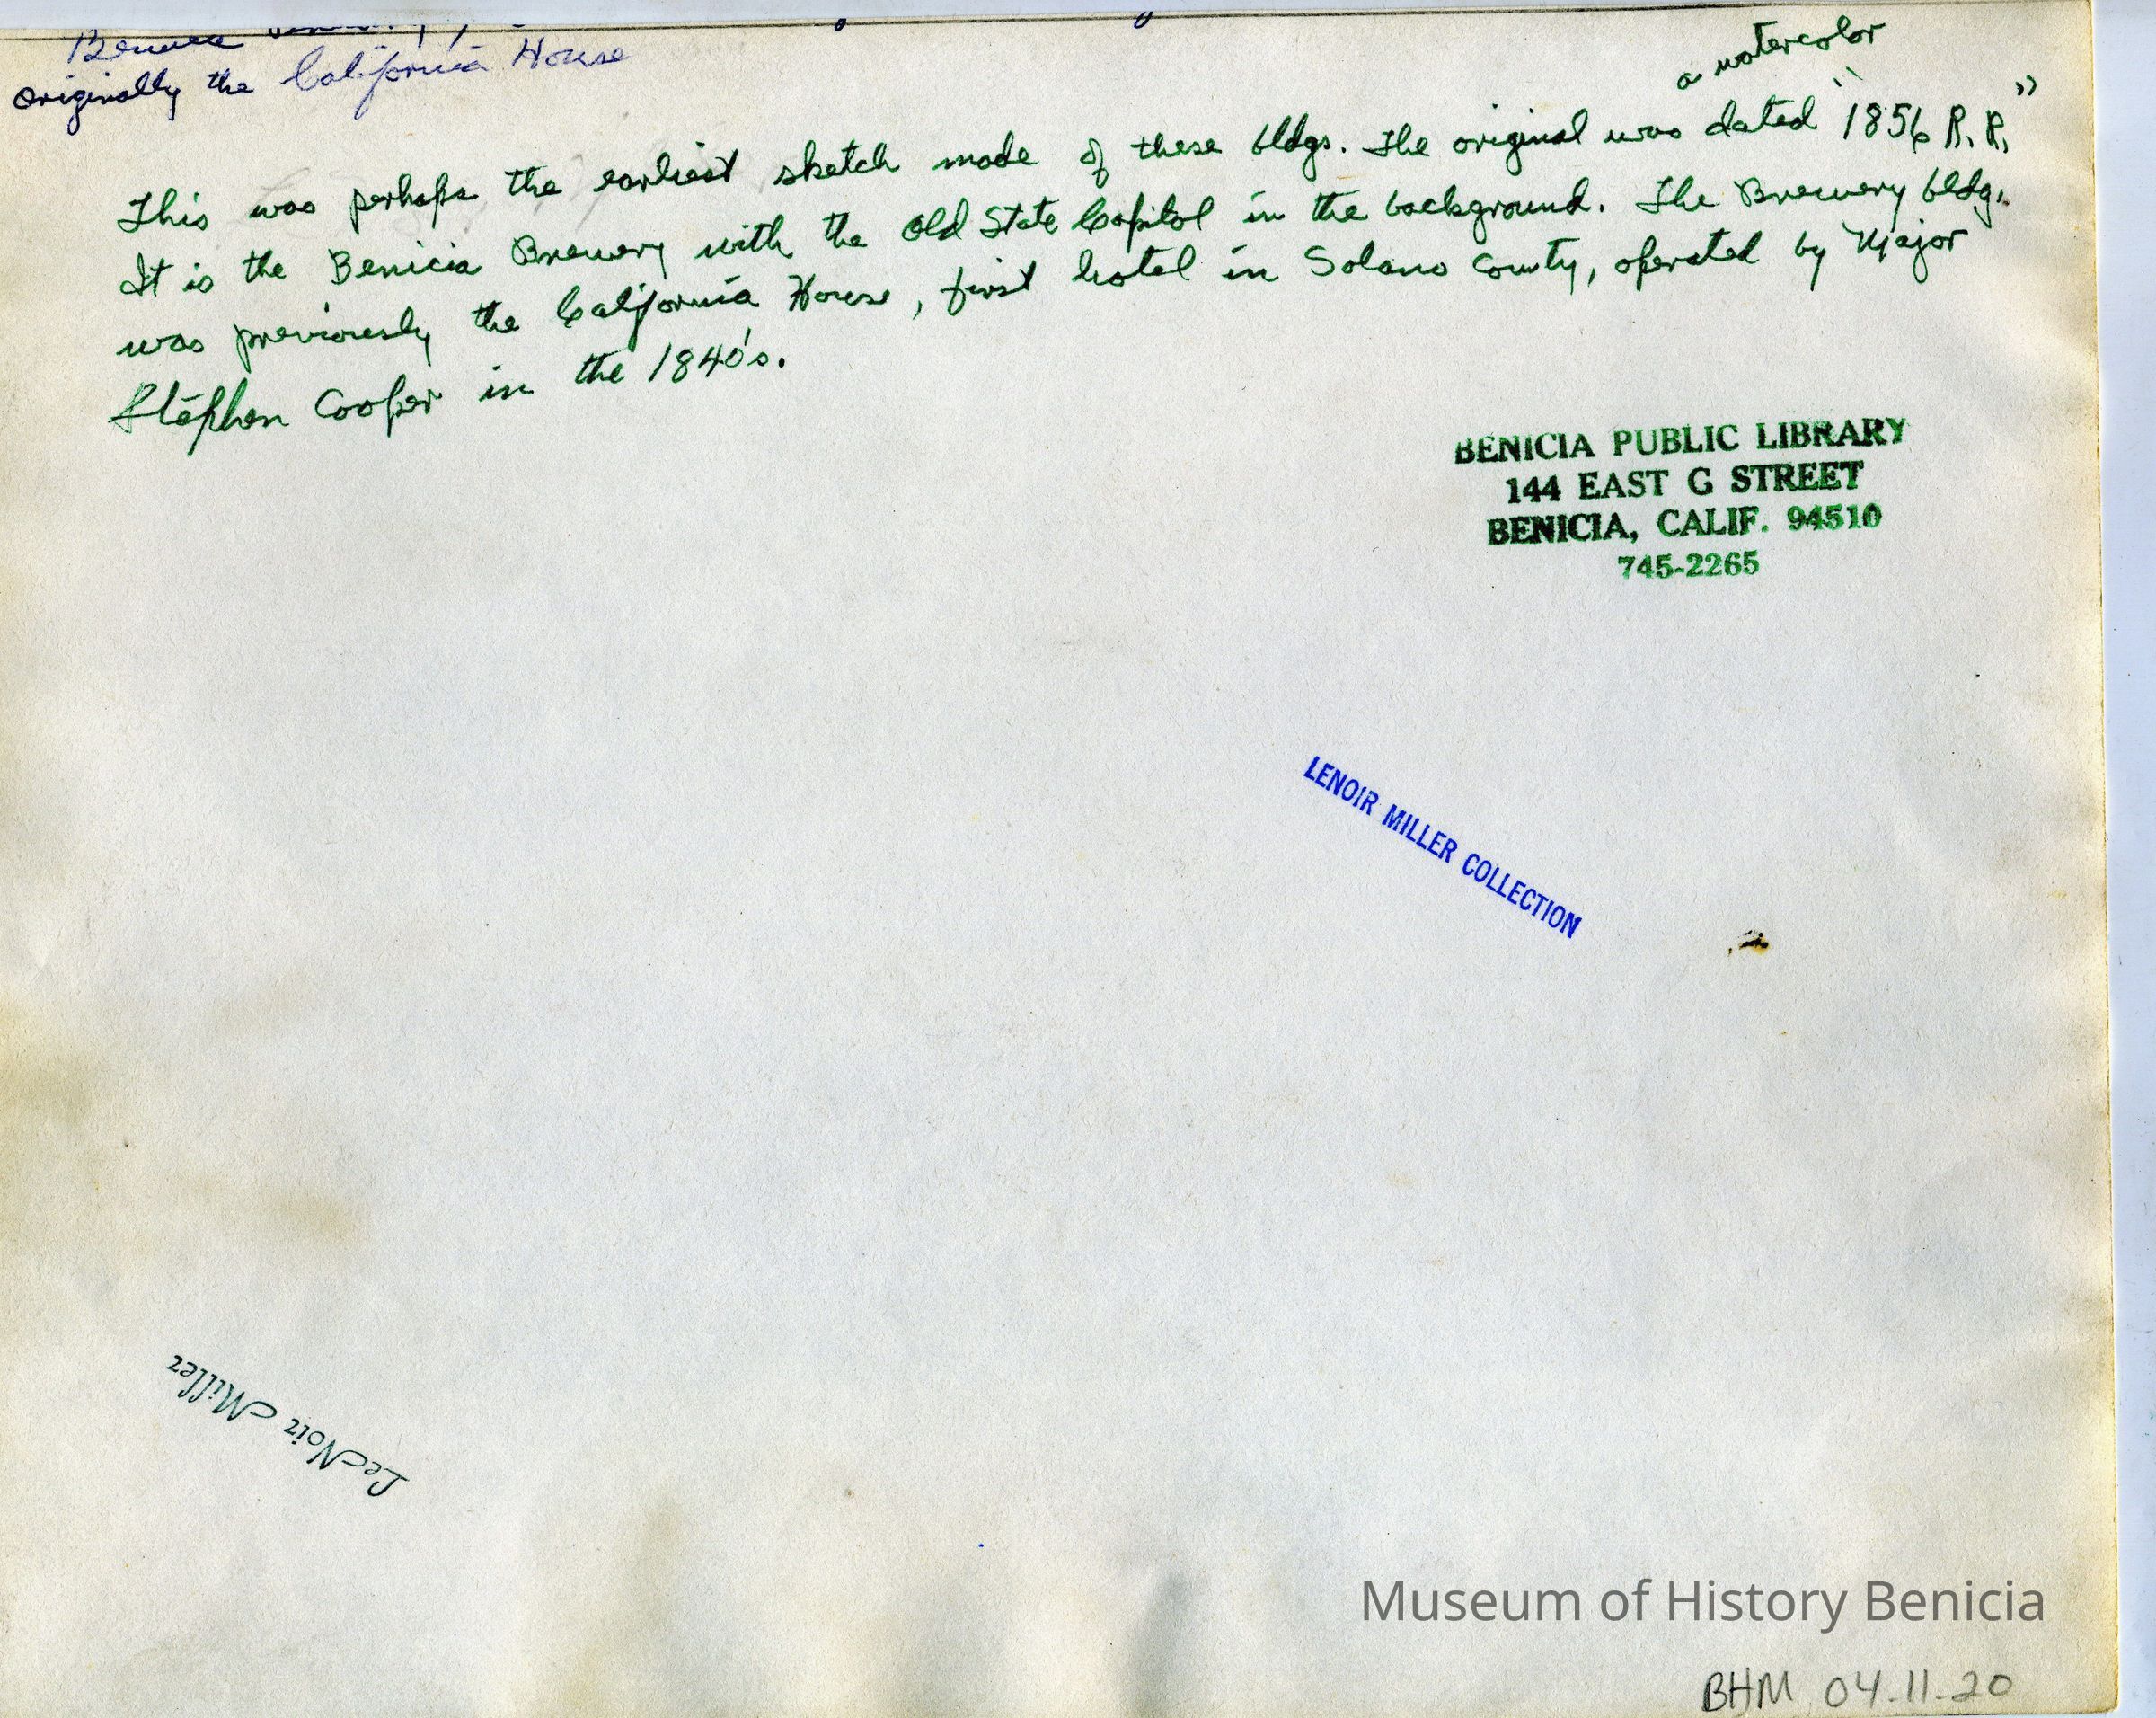 originally the California House
a watercolor
This was perhaps the earliest sketch made of these bldgs. The original was dated "1856 R. R."
It is the Benicia Brewery with the Old State Capitol in the background. The Brewery bldg.
was previously the California House, first hotel in Solano County, operated by Major
Stephen Cooper in the 1840's.
BENICIA PUBLIC LIBRARY
144 EAST G STREET
BENICIA, CALIF. 94510
745-2265
LENOIR MILLER COLLECTION
LeNoir Miller
Museum of History Benicia
BHM 04.11.20